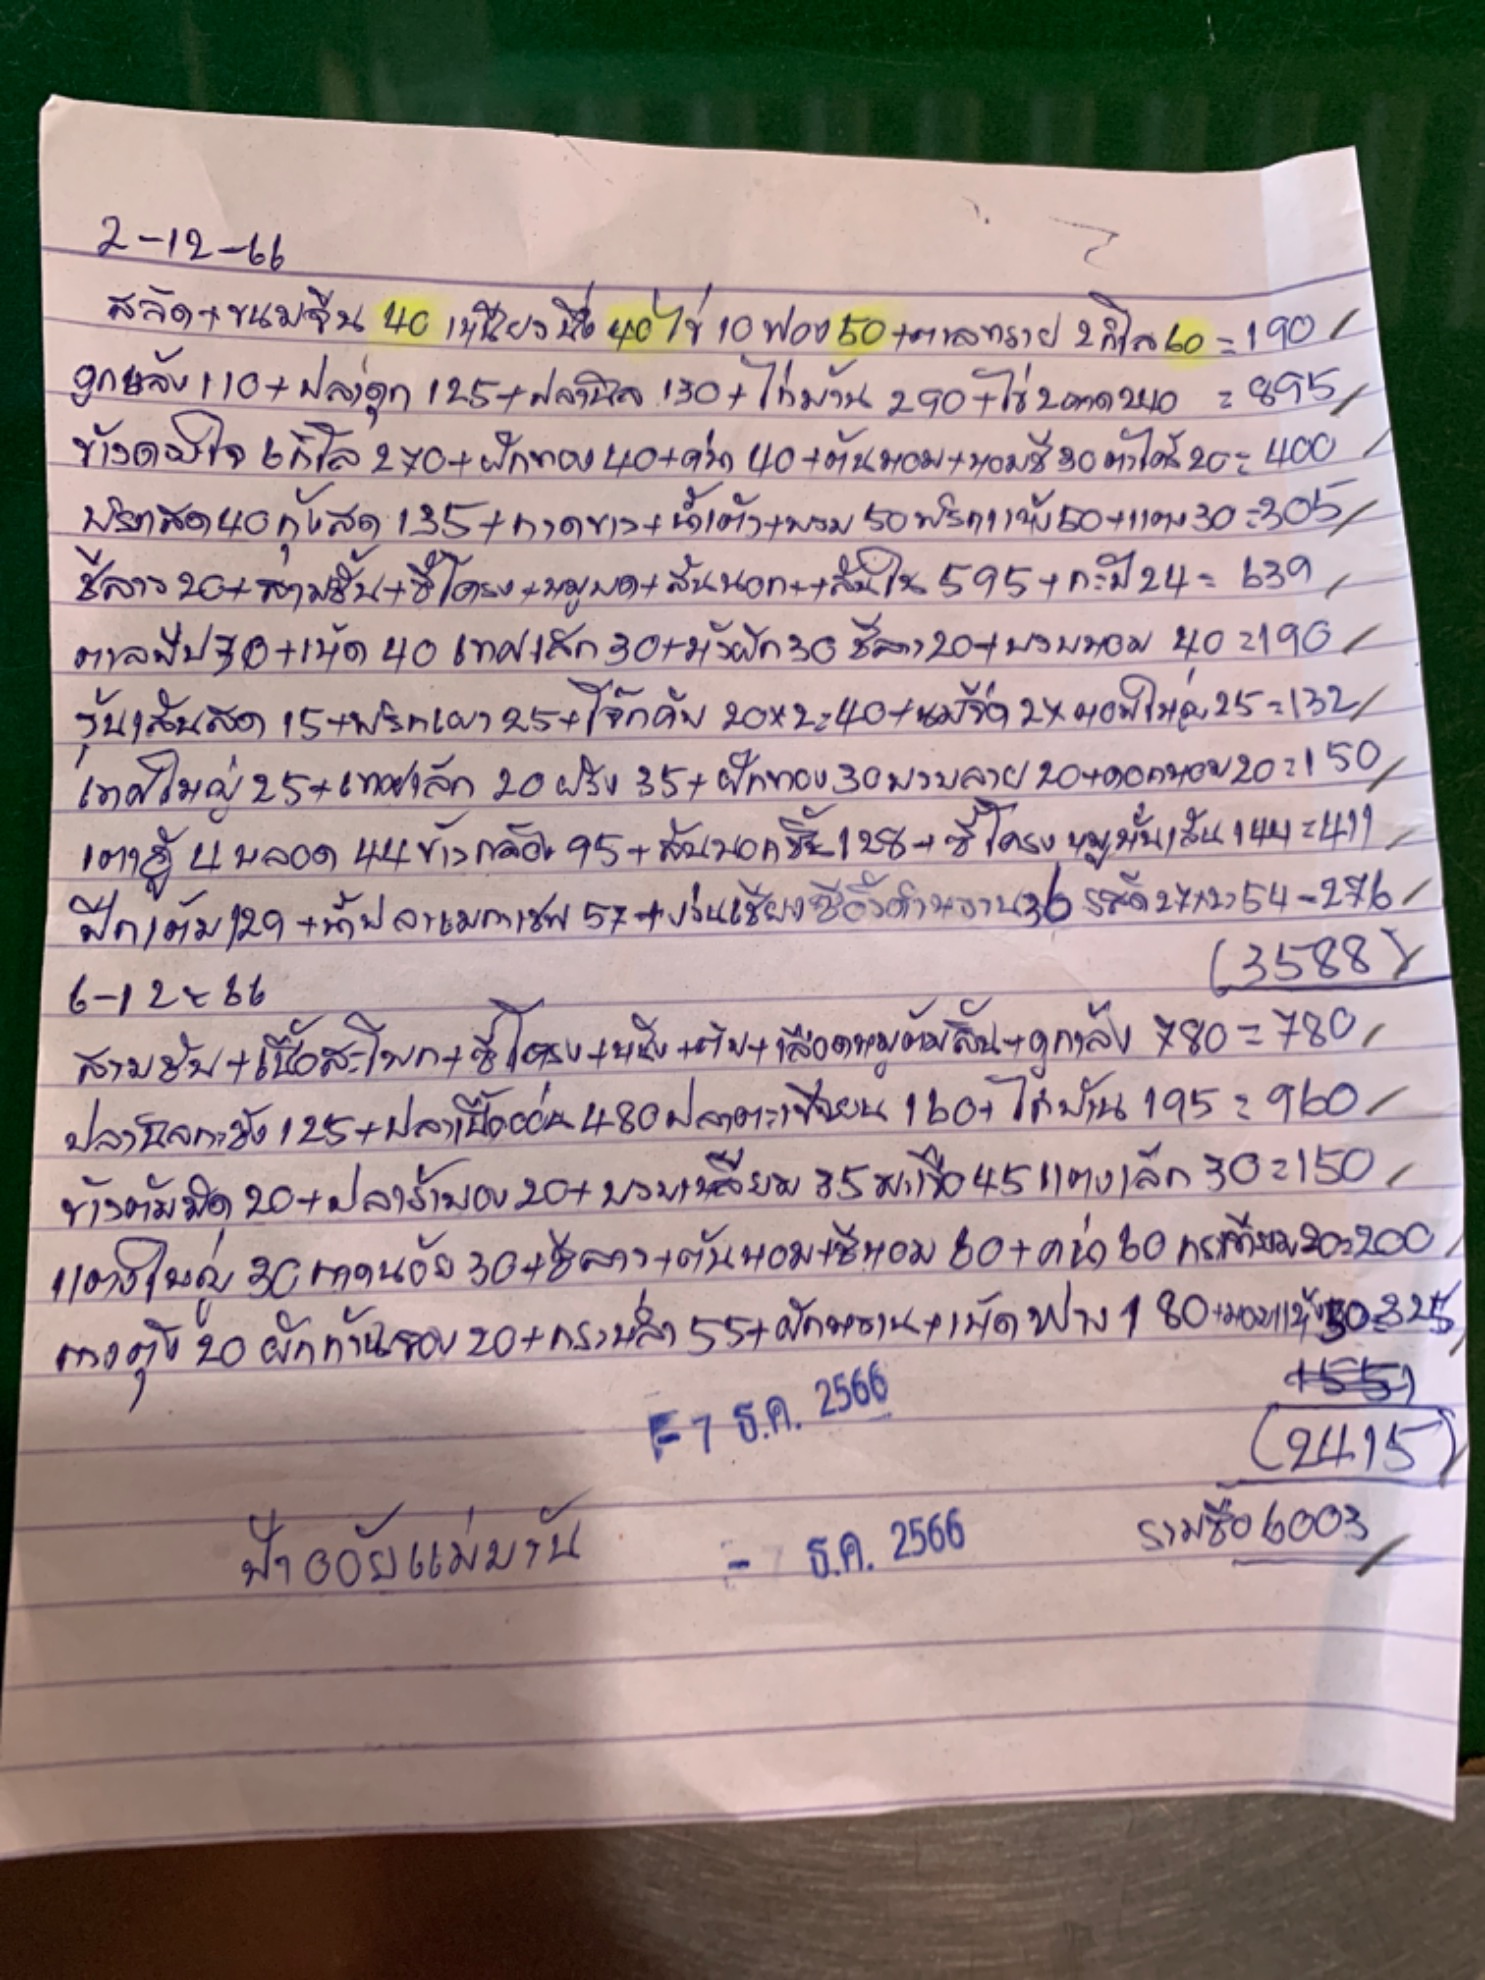 2-12-66
สลัด+ขนมจีน 40 เหนียวนึ่ง 40 ไข่ 10 ฟอง 50+ตาลทราย 2 กิโล 60 = 190
ดูกหลัง 110+ปลาดุก 125+ปลานิล 130+ไก่บ้าน 290+ไข่ 2ถาด 240 = 895
ข้าวดวงใจ 6 กิโล 270+ฝักทอง 40+คน้า 40+ต้นหอม+หอมชี 30 ตะไคร้ 20 = 400
พริกสด 40 กุ้งสด 135+กาดขาว+น้ำเต้า+บวบ 50 พริกแห้ง 50+แตง 30 = 305
ชีลาว 20+สามชั้น+ซี่โครง+หมูบด+สันนอก++สันใน 595+กะปิ 24 = 639
ตาลปีป 30+เห็ด 40 เทศเล็ก 30+บัวฝัก 30 ชีลาว 20+บวบหอม 40 = 190
วุ้นเส้นสด 15+พริกเผา 25+โจ๊กคัพ 20×2=40+นมจืด 27 หอมใหญ่ 25 = 132
เทศใหญ่ 25+เทศเล็ก 20 ฝรั่ง 35+ฝักทอง 30 บวบลาย 20+ดอกหอม 20 = 150
เตาฮู้ 4 หลอด 44 ข้าวกล้อง 95+สันนอกชิ้น 128+ซี่โครงหมูหั่นเส้น 144 = 411
ปีกเต็ม 129+น้ำปลาเมกาเชฟ 57+ ซีอิ้วดำหวาน 36 รสดี 27×2 54 - 276
(3588)
6-12-66
สามชั้น+เนื้อสะโพก+ซี่โครง+หนัง+ตับ+เลือดหมูต้มสิ้น+ดูกหลัง 780 = 780
ปลานิลกะชัง 125+ปลาเนื้ออ่อน 480 ปลาตะเพียน 160+ไก่บ้าน 195 = 960
ข้าวต้มมัด 20+ปลาร้าบอง 20+บวบเหลี่ยม 35 มะเขือ 45 แตงเล็ก 30 = 150
แตงใหญ่ 30 กาดน้อย 30+ชีลาว+ต้นหอม+ชีหอม 60+คน้า 60 กระเทียม 20 = 200
กวางตุ้ง 20 ผักก้านจอง 20+กระหล่ำ 55+ผักหวาน+เห็ดฟาง 180+หอมแห้ง 50 = 325
(2415)
- 7 ธ.ค. 2566
รวมซื้อ 6003
ป้าออยแม่บ้าน
- 7 ธ.ค. 2566